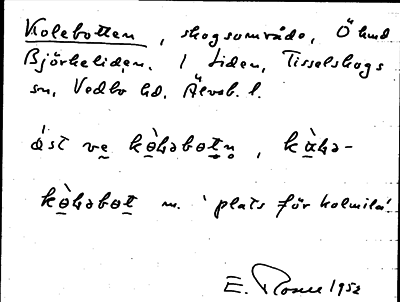 Kolebotten, skogsområde, Ö hmd
Björkeliden. 1 Liden, Tisselskogs
sn, Vedbo hd. Älvsb. l.
åst ve kò̱ḷəbo̱tn̥, kà̱ḷə-
kò̱ḷəbo̱t m. 'plats för kolmila'
E. Rosell 1952